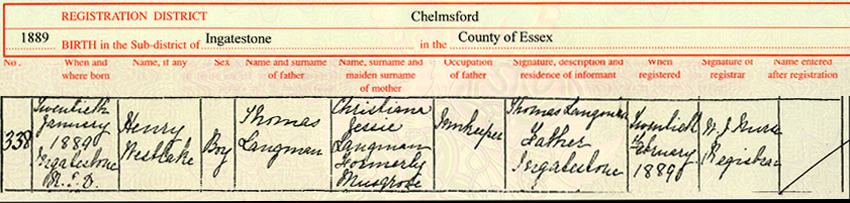 REGISTRATION DISTRICT Chelmsford
1889 BIRTH in the Sub-district of Ingatestone in the County of Essex
No. When and where born Name, if any Sex Name and surname of father Name, surname and maiden surname of mother Occupation of father Signature, description and residence of informant When registered Signature of registrar Name entered after registration
338
Twentieth
January
1889
Ingatestone
R.S.D.
Henry
Westlake
Boy
Thomas
Langman
Christiana
Jessie
Langman
formerly
Musgrove
Innkeeper
Thomas Langman
Father
Ingatestone
Twentieth
February
1889
W. J.
Registrar